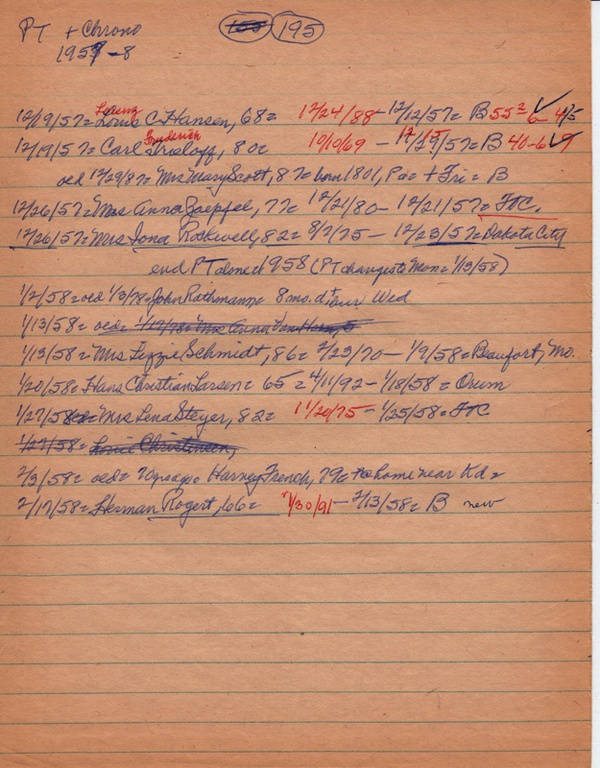 PT + Chrono 155 195
1957-8
Lorenz
12/19/57= Louis C. Hansen, 68= 12/24/88 - 12/12/57= B 55² 6- 4/5
Frederick
12/19/57= Carl 80= 10/10/69 - 12/15/57= B 40-6-9
oed 12/29/87= Mrs Mary Scott, 87= born 1801, Pac + Tri= B
12/26/57= Mrs Anna Zaepfel, 77= 12/21/80 - 12/21/57= FTC.
12/26/57= Mrs Iona Rockwell, 82= 8/7/75 - 12/23/57= Dakota City
end PT done 1958 (PT changes to Mon= 1/13/58)
1/2/58= oed 1/3/78= John Rathmann= 8 mo. d+ our Wed
1/13/58= oed= 1/19/78= Mrs Anna Van Horn, 5
1/13/58= Mrs Lizzie Schmidt, 86= 2/23/70 - 1/9/58= Beaufort, Mo.
1/20/58= Hans Christian Larsen= 65= 4/11/92 - 1/18/58= Orum
1/27/58= Mrs Lena Steyer, 82= 11/20/75 - 1/25/58= FTC
1/27/58= Louie Christensen,
2/3/58= oed= 70 yrs ago= Harney French, 79= home near Kd=
2/17/58= Herman Rogert, 66= 7/30/91 - 2/13/58= B new